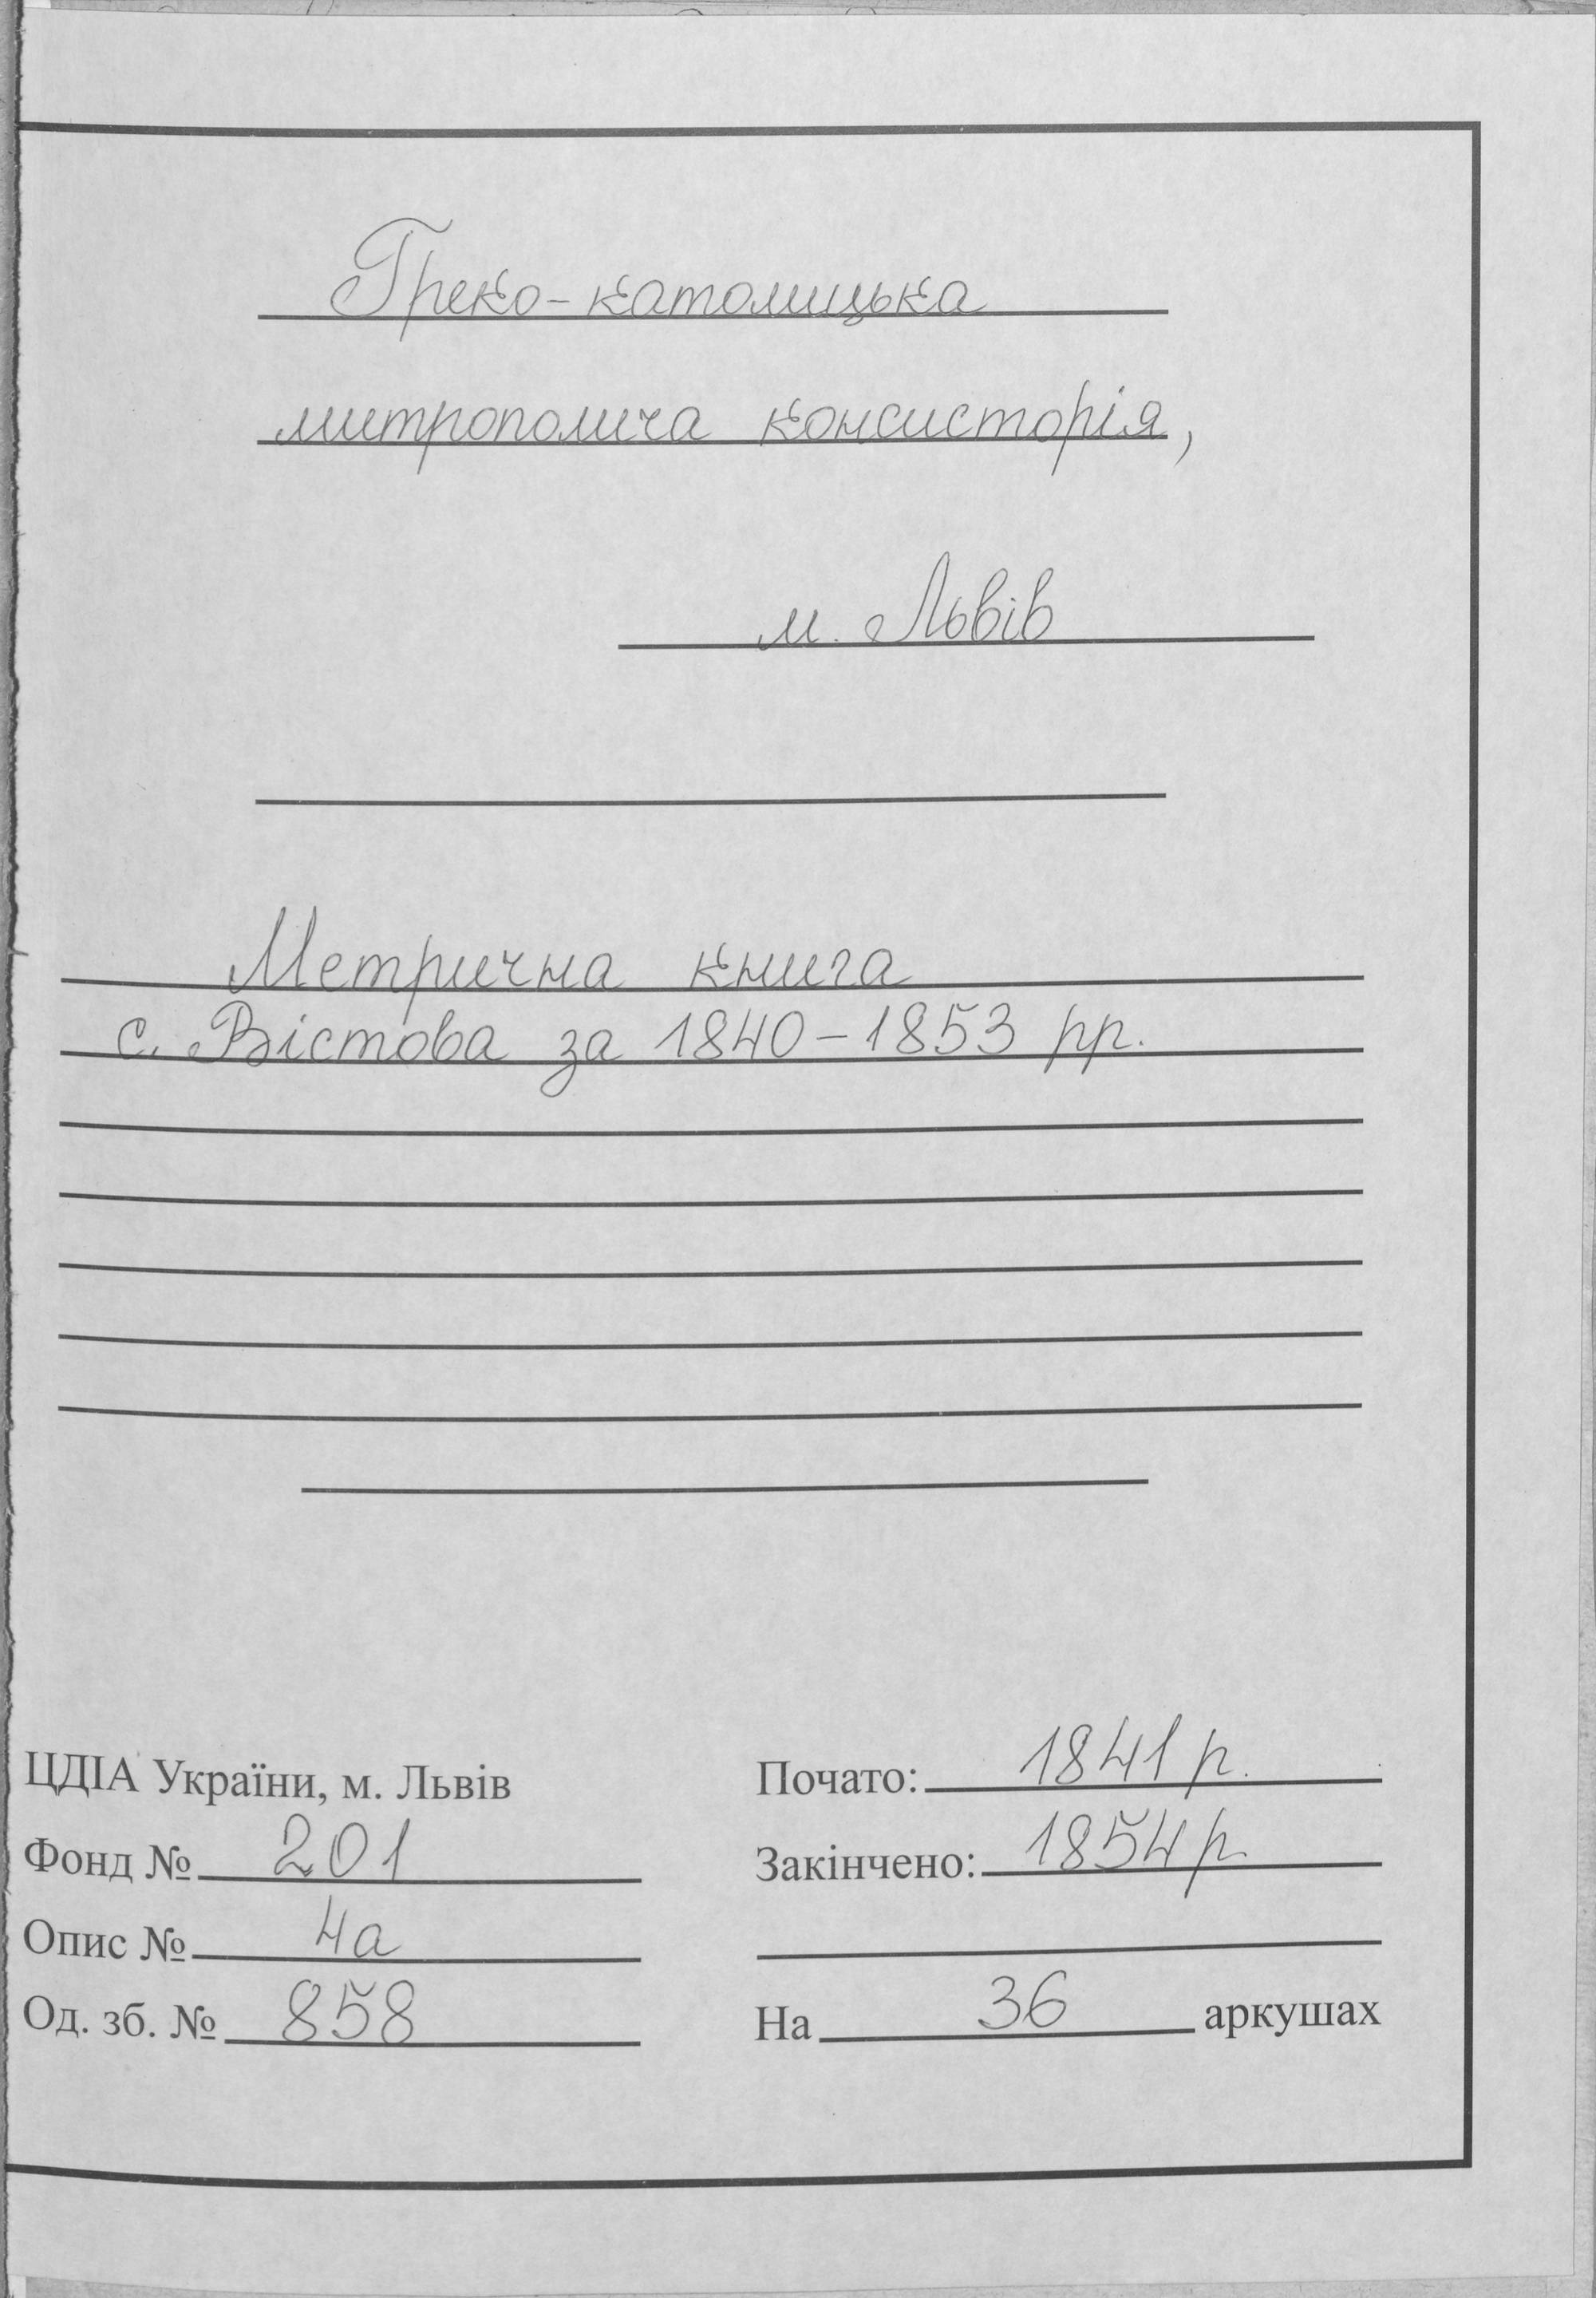 Греко-католицька
митрополича консисторія,
м. Львів
Метрична книга
с. Вістова за 1840-1853 рр.
ЦДІА України, м. Львів
Фонд № 201
Опис № 4а
Од. зб. № 858
Почато: 1841 р.
Закінчено: 1854 р.
На 36 аркушах